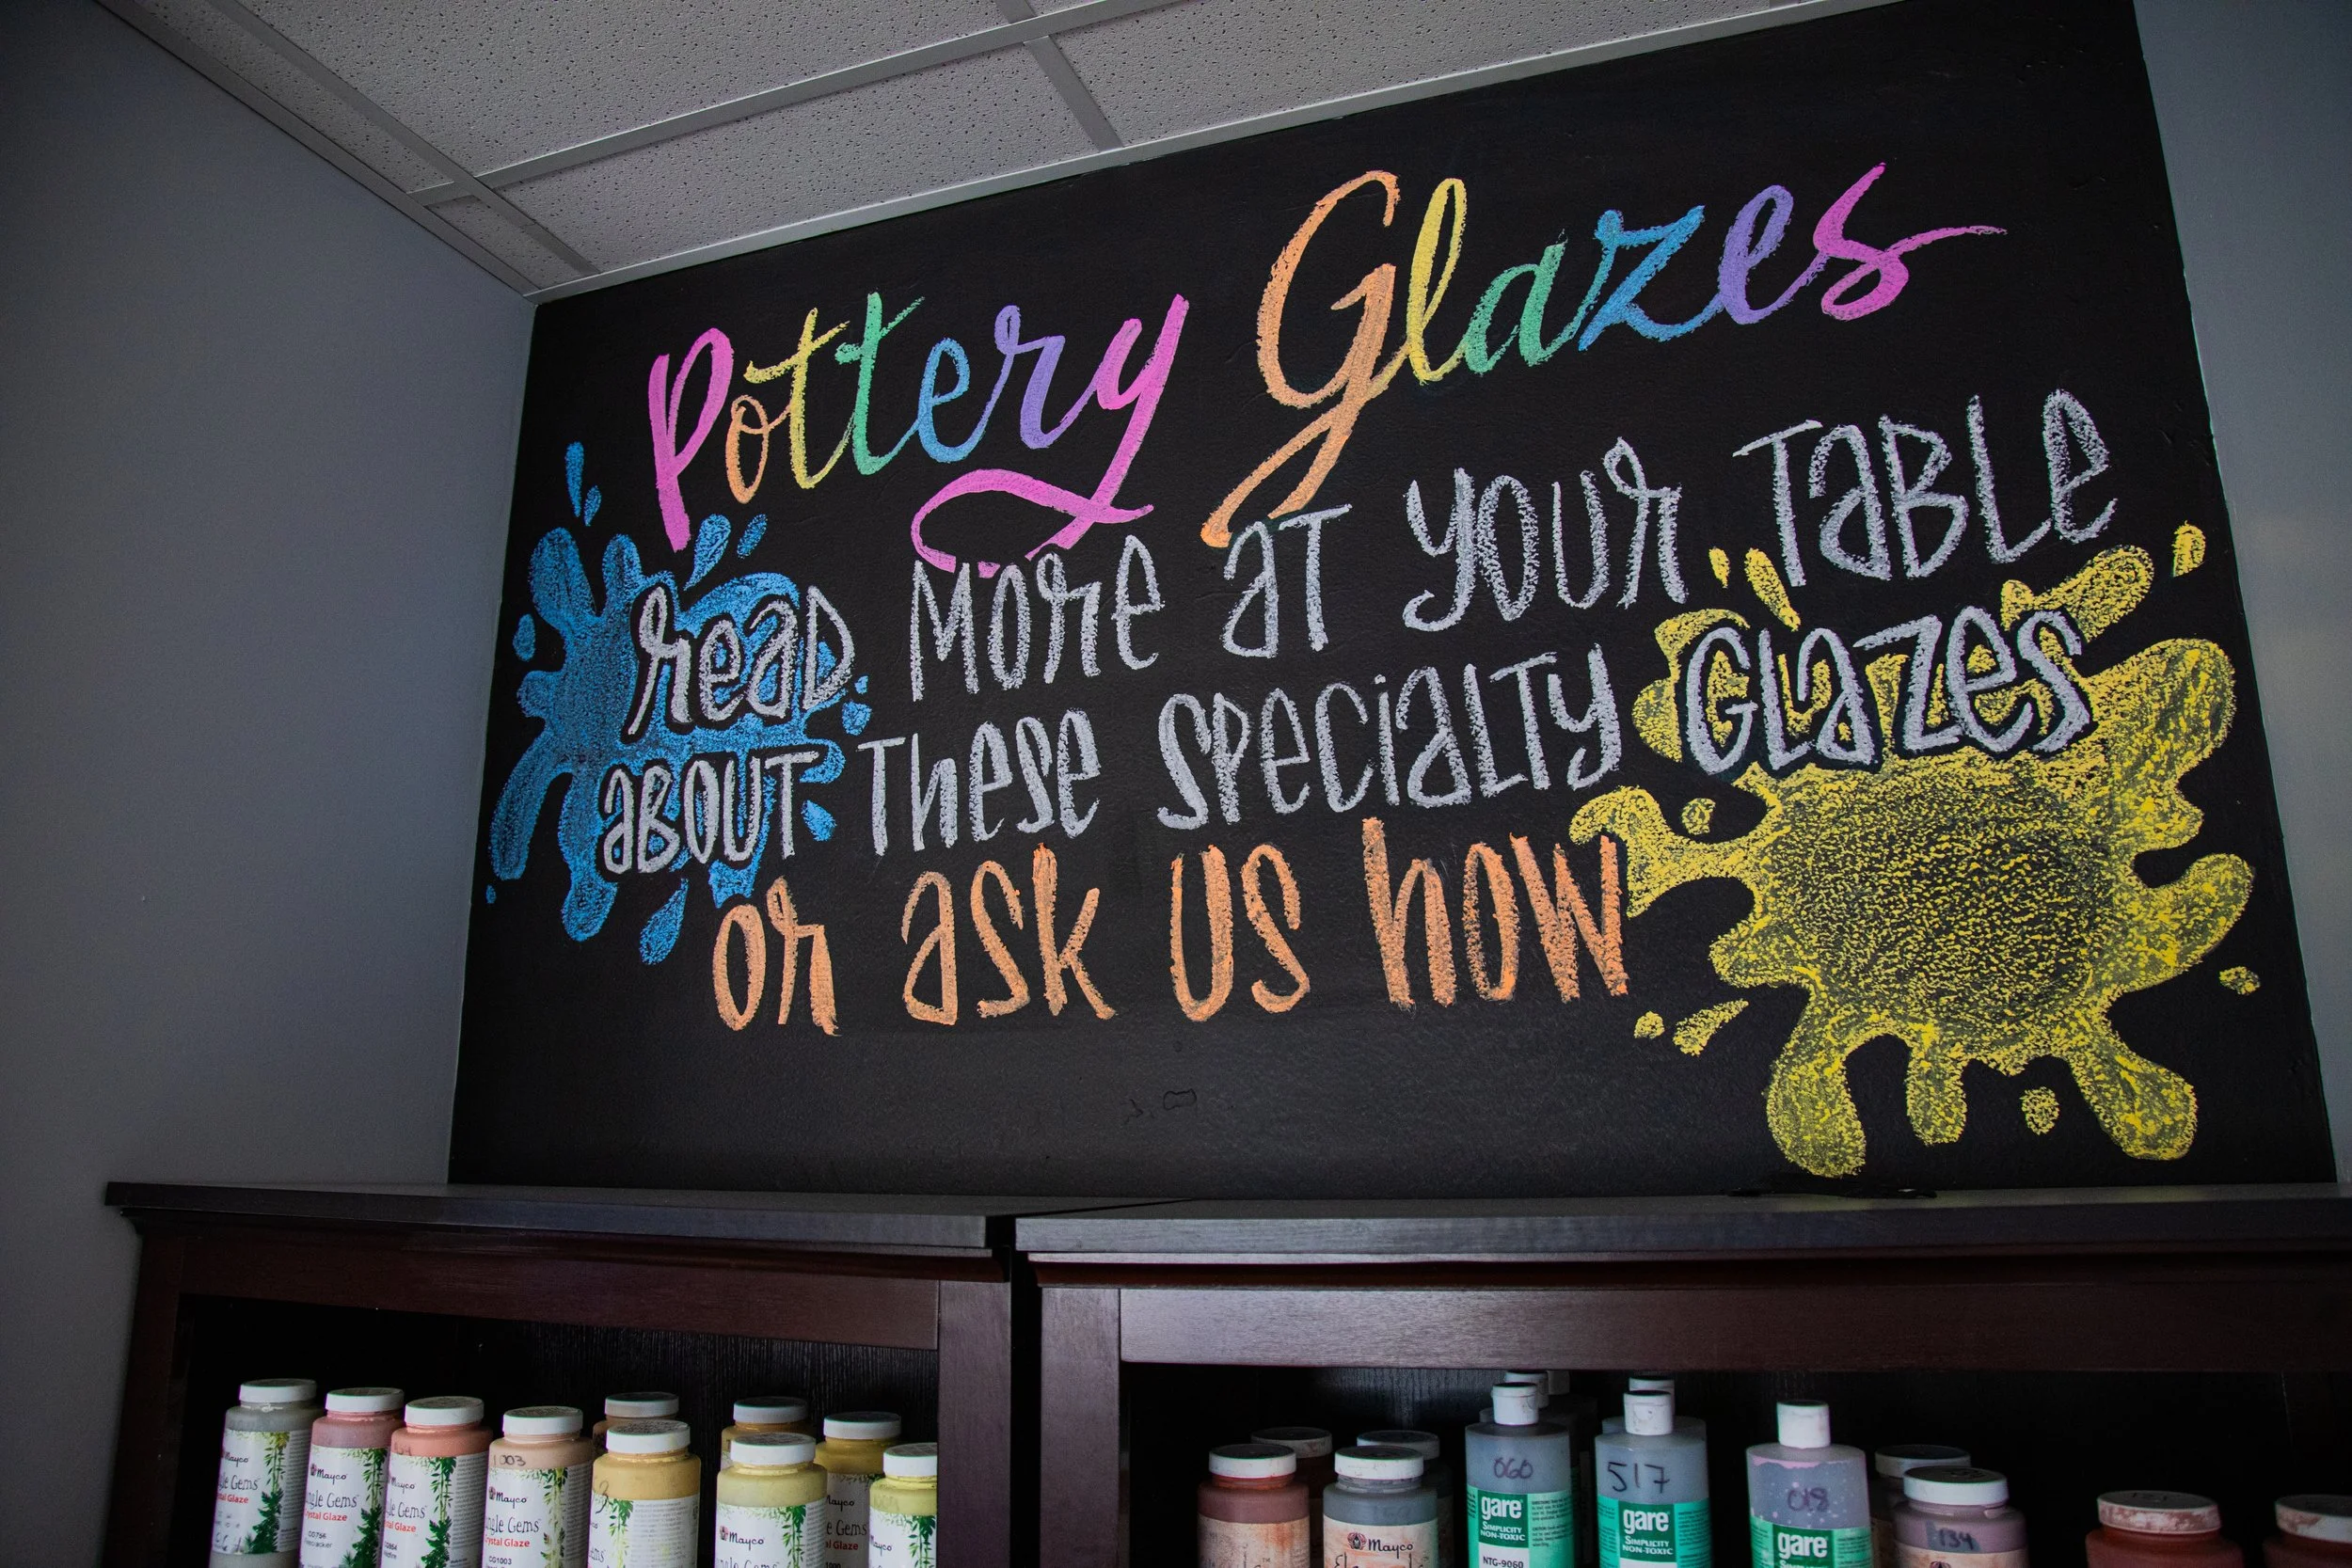 Pottery Glazes
read more at your table
about these specialty glazes
or ask us how
1003
Mayco
Mayco
Mayco
Mayco
Mayco
Jungle Gems
Crystal Glaze
CG1003
Mayco
060
gare
SIMPLICITY
NON-TOXIC
NTG-9060
517
gare
SIMPLICITY
NON-TOXIC
018
gare
134